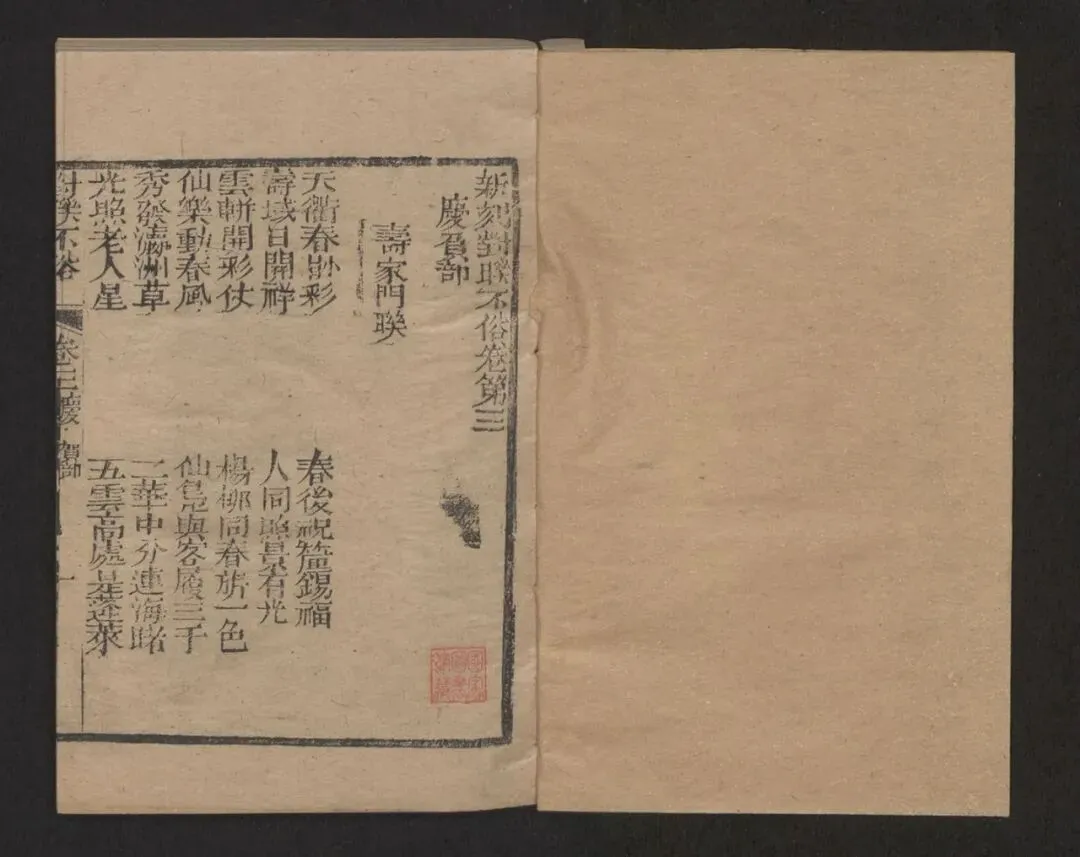 新刻對聯不俗卷第三
慶賀部
壽家門聯
天衢春彩
春後祝釐錫福
壽域日開祥
人同照景有光
雲軿開彩仗
楊柳同春旂一色
仙樂動春風
仙與客履三千
秀發瀛洲草
二華中分連海曙
光照老人星
五雲高處是蓬萊
對聯不俗
卷三
慶賀部
一